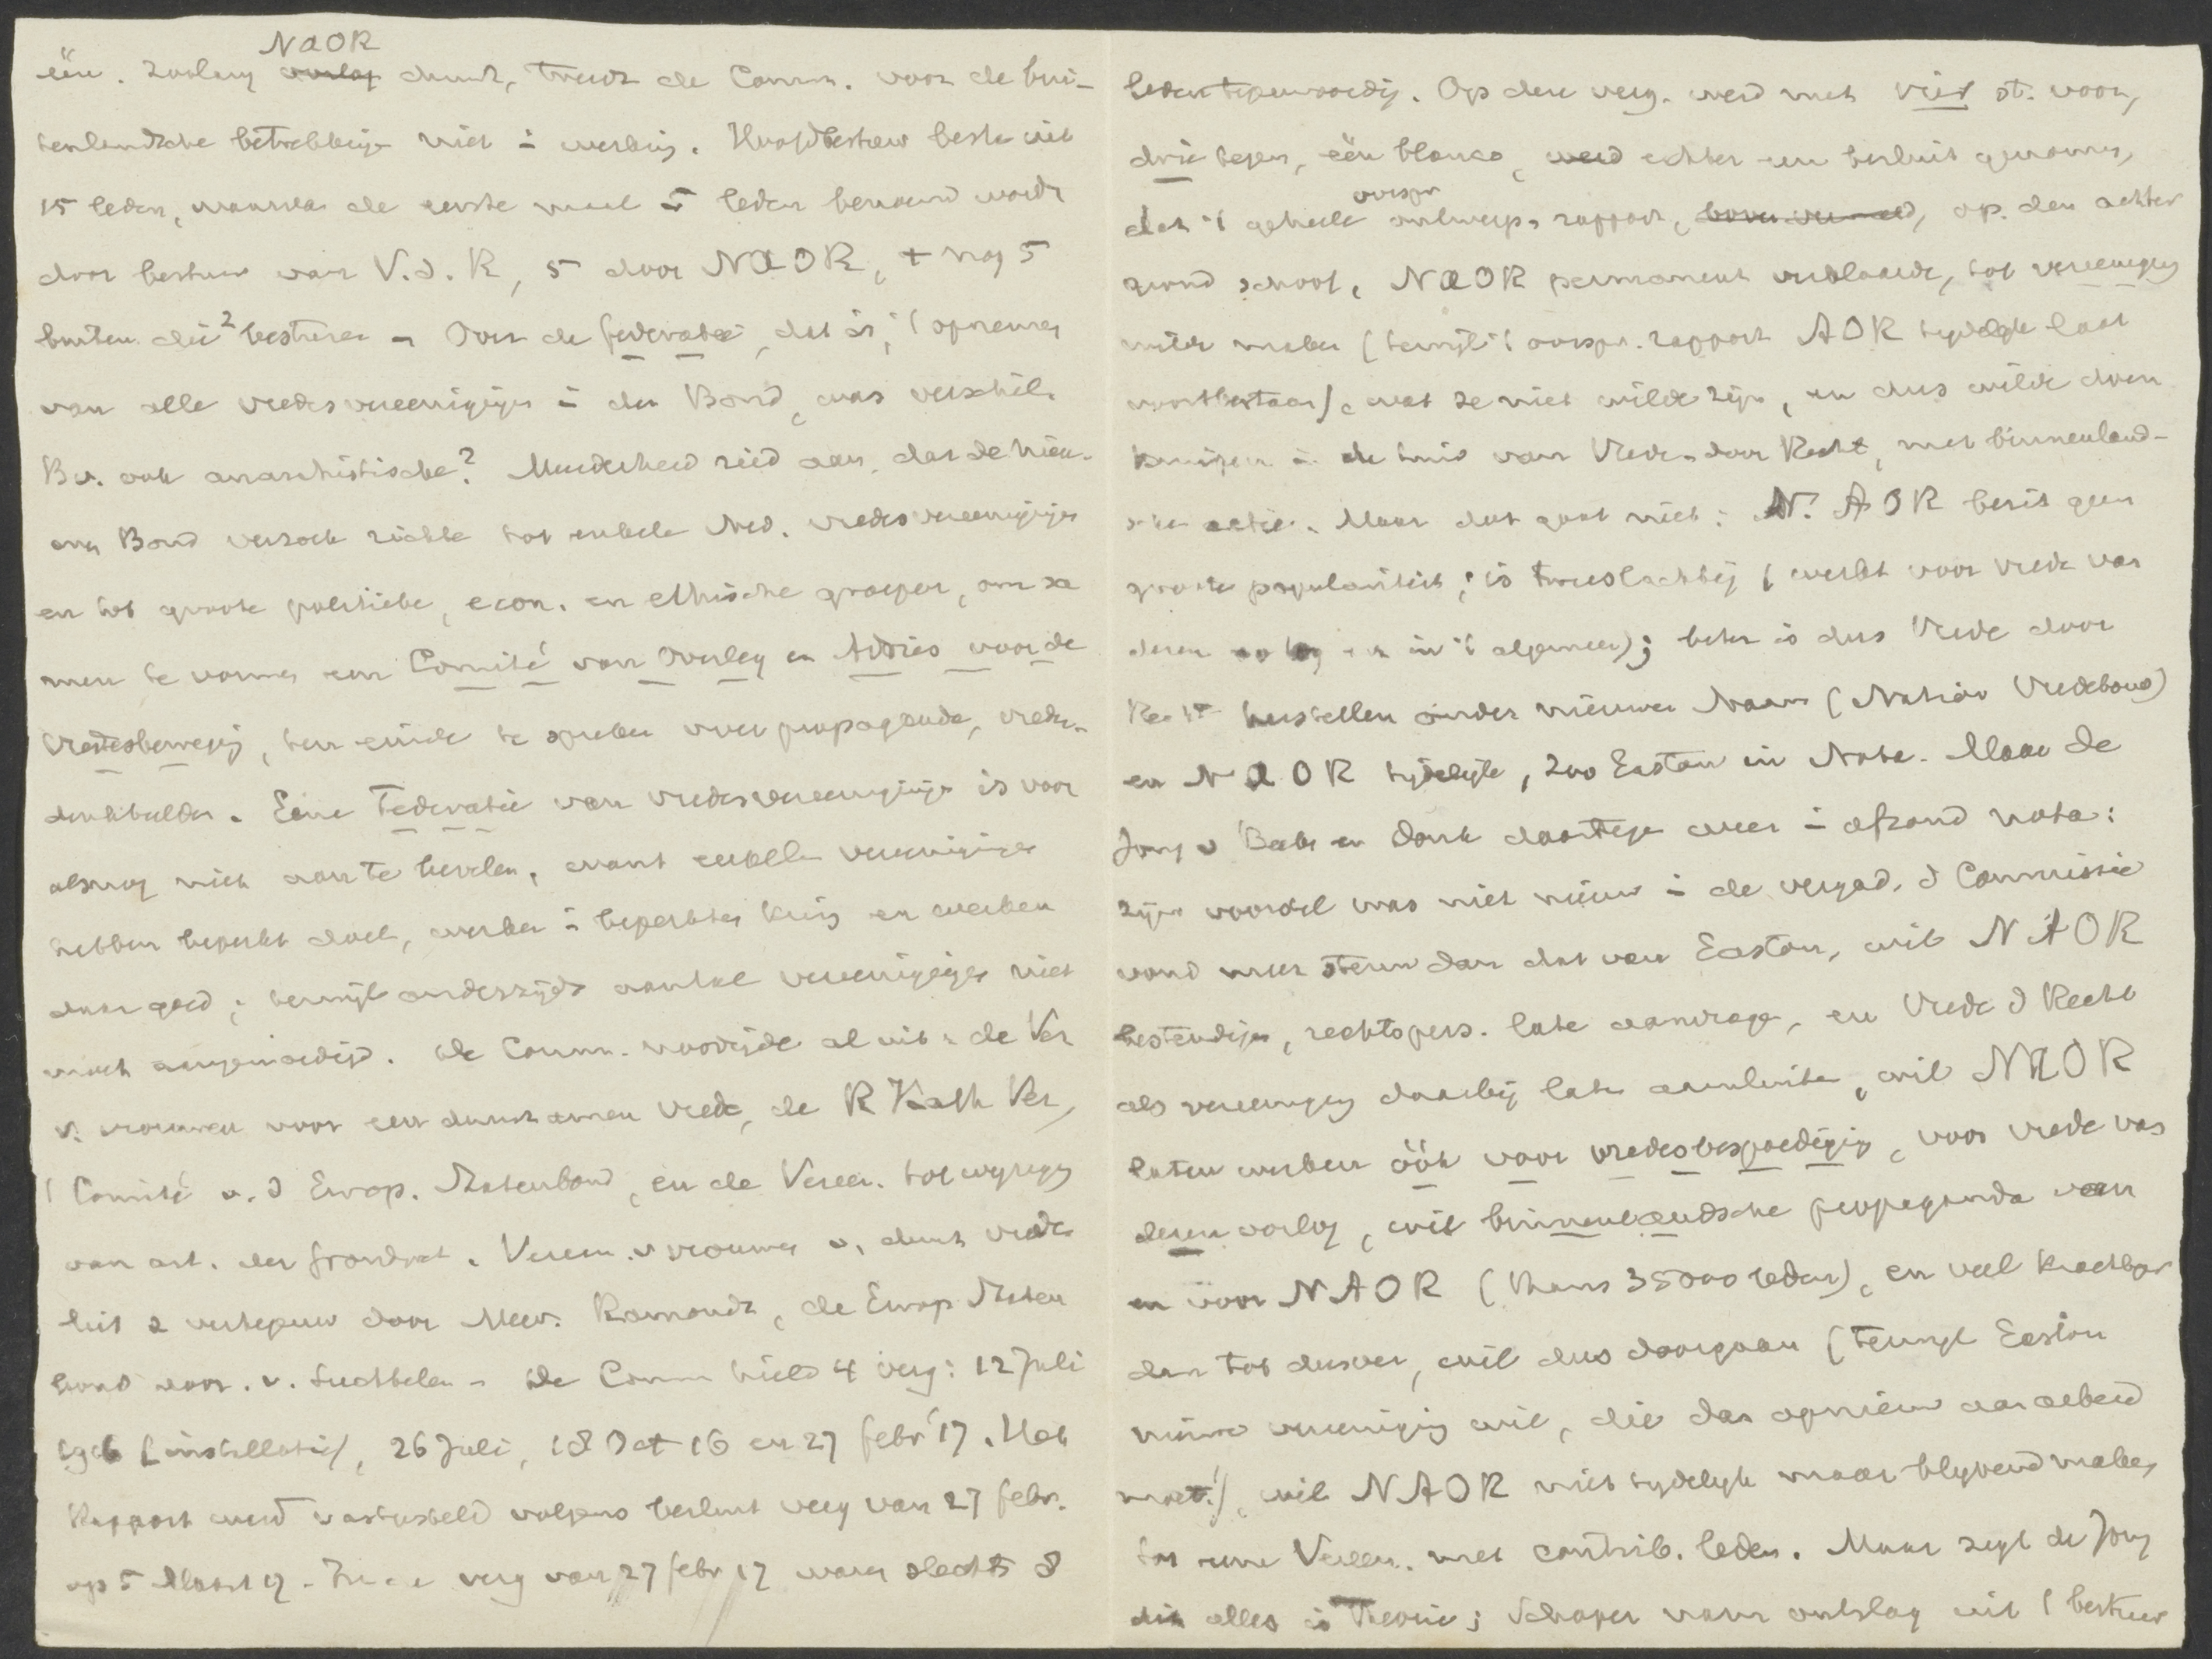 NAOR
één. Zoolang oorlog duurt, treedt de Comm. voor de bui-
tenlandsche betrekkingen niet in werking. Hoofdbestuur besta uit
15 leden, waarvan de eerste maal 5 leden benoemd worde
door bestuur van V.d.R, 5 door NAOR, + nog 5
buiten die 2 besturen - Over de federatie, dat is, 't opnemen
van alle vredesvereenigingen in den Bond, was verschil.
Bv. ook anarchistische? Meerderheid ried aan, dat de nieu-
we Bond verzoek richtte tot enkele Ned. vredesvereenigingen
en tot groote politieke, econ. en ethische groepen, om sa
men te vormen een Comité van Overleg en Advies voor de
Vredesbeweging, ten einde te spreken over propaganda, vredes-
denkbeelden. Eene Federatie van vredesvereenigingen is voor
alsnog niet aan te bevelen, want enkele vereenigingen
hebben beperkt doel, werken in beperkten kring en werken
daar goed; terwijl anderzijds aantal vereenigingen niet
moet aangemoedigd. De Comm. noodigde al uit: de Ver
v. vrouwen voor een duurzamen vrede, de R Kath Ver,
't Comité v. d Europ. Statenbond, en de Vereen. tot wijziging
van art. der grondwet. Vereen. v vrouwen v. duurz vrede
liet z vertegenw door Mevr. Ramondt, de Europ Staten
bond door v. Suchtelen - De Comm hield 4 verg: 12 Juli
1916 (installatie), 26 Juli, 18 Oct 16 en 27 febr '17. Het
Rapport werd vastgesteld volgens besluit verg van 27 febr.
op 5 Maart 17 - In de verg van 27 febr 17 waren slechts 8
leden tegenwoordig. Op deze verg. werd met vier st. voor,
drie tegen, één blanco, werd echter een besluit genomen,
oorspr
dat 't geheele ontwerp-rapport, op den achter
grond schoof, NAOR permanent verklaarde, tot vereeniging
wilde maken (terwijl 't oorspr. rapport AOR tijdelijk laat
voortbestaan), wat ze niet wilde zijn, en dus wilde doen
in de trant van Vrede door Recht, met binnenland-
sche actie. Maar dat gaat niet: N. AOR bezit geen
groote populariteit; is tweeslachtig (werkt voor vrede van
dezen oorlog en in 't algemeen); beter is dus Vrede door
Recht herstellen onder nieuwen Naam (Nation Vredebond)
en NAOR tijdelijk, zoo Easton in Nota. Maar de
Jong v Beek en Donk daartegen weer in afzond nota:
zijn voorstel was niet nieuw in de vergad. d Commissie
vond meer steun dan dat van Easton, wil NAOR
bestendigen, rechtspers. late aanvragen, en Vrede d Recht
als vereeniging daarbij late aansluiten, wil NAOR
laten werken óók voor vredesbespoediging, voor vrede van
dezen oorlog, wil binnenlandsche propaganda van
en voor NAOR (thans 35000 leden), en veel krachtiger
dan tot dusver, wil dus doorgaan (terwijl Easton
nieuwe vereeniging wil, die dan opnieuw aan arbeid
moet!), wil NAOR niet tijdelijk maar blijvend maken
tot eene Vereen. met contrib. leden. Maar zegt de Jong
dit alles is Theorie; Schaper nam ontslag uit 't bestuur